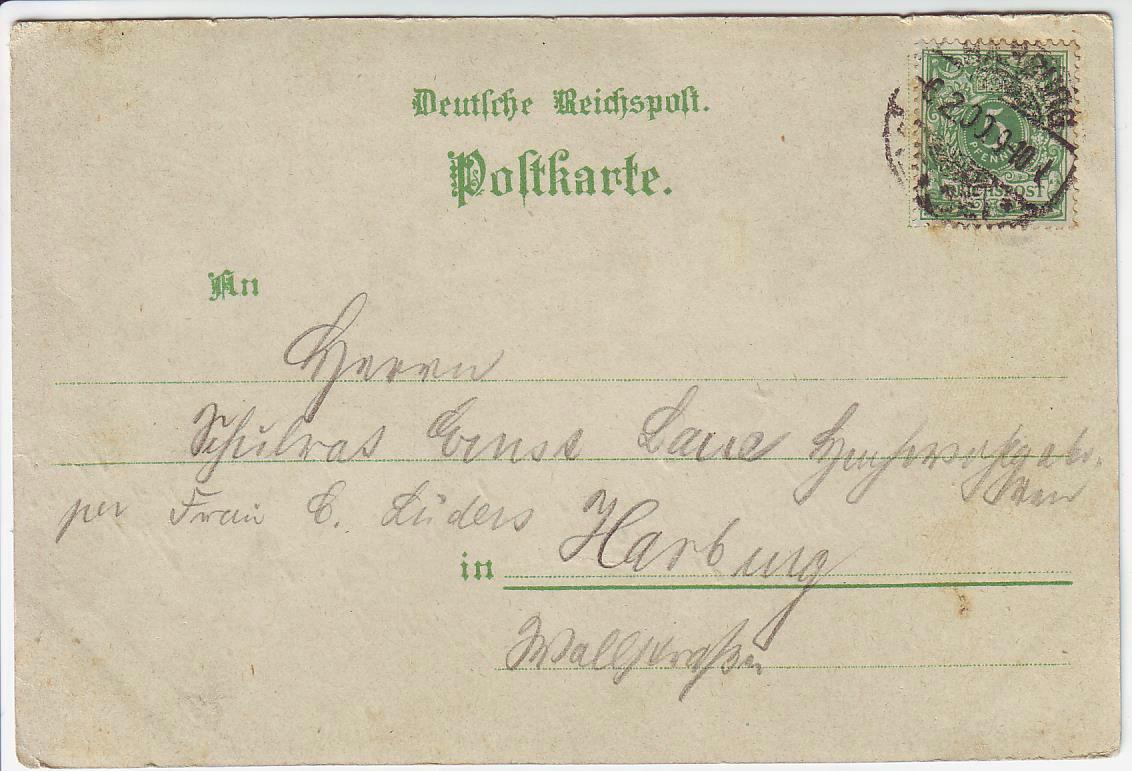 Deutsche Reichspost.
Postkarte.
5
PFENNIG
REICHSPOST
6.2.00.9-10V
An
Herrn
Schulrat Ernst
per Frau C. Lüders
in Harburg
Wallstraße